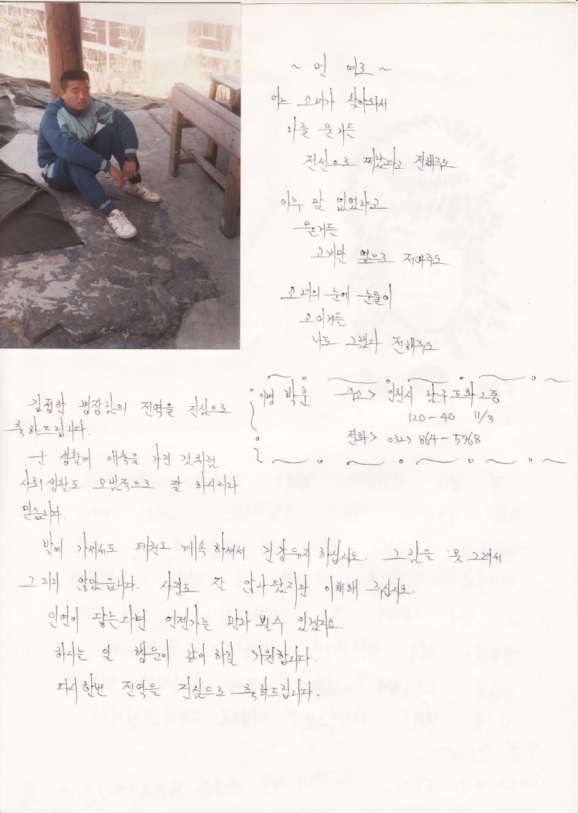 ~ 먼 여로 ~
어느 소녀가 찾아와서
나를 묻거든
전선으로 떠났다고 전해주오
아무 말 없었냐고
묻거든
고개만 옆으로 저어주오
소녀의 눈에 눈물이
고이거든
나도 그랬다 전해주오
이병 박훈 주소> 인천시 남구 도화2동
120-40 11/3
전화> 032) 864-5968
김점한 병장님의 전역을 진심으로
축하드립니다.
군 생활에 애착을 가진 것처럼
사회생활도 모범적으로 잘 하시리라
믿습니다.
밖에 가셔도 태권도 계속 하셔서 건강유지 하십시오. 그림은 못 그려서
그리지 않았습니다. 사진도 잘 안나왔지만 이해해 주십시오.
인연이 닿는다면 언젠가는 만나 뵐수 있겠지요.
하시는 일 행운이 같이하길 기원합니다.
다시한번 전역을 진심으로 축하드립니다.